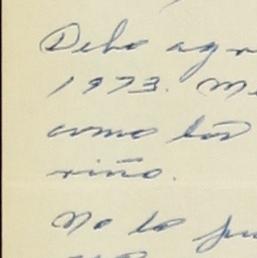 Debo agr
1973. Me
como los
riño.
No lo pu